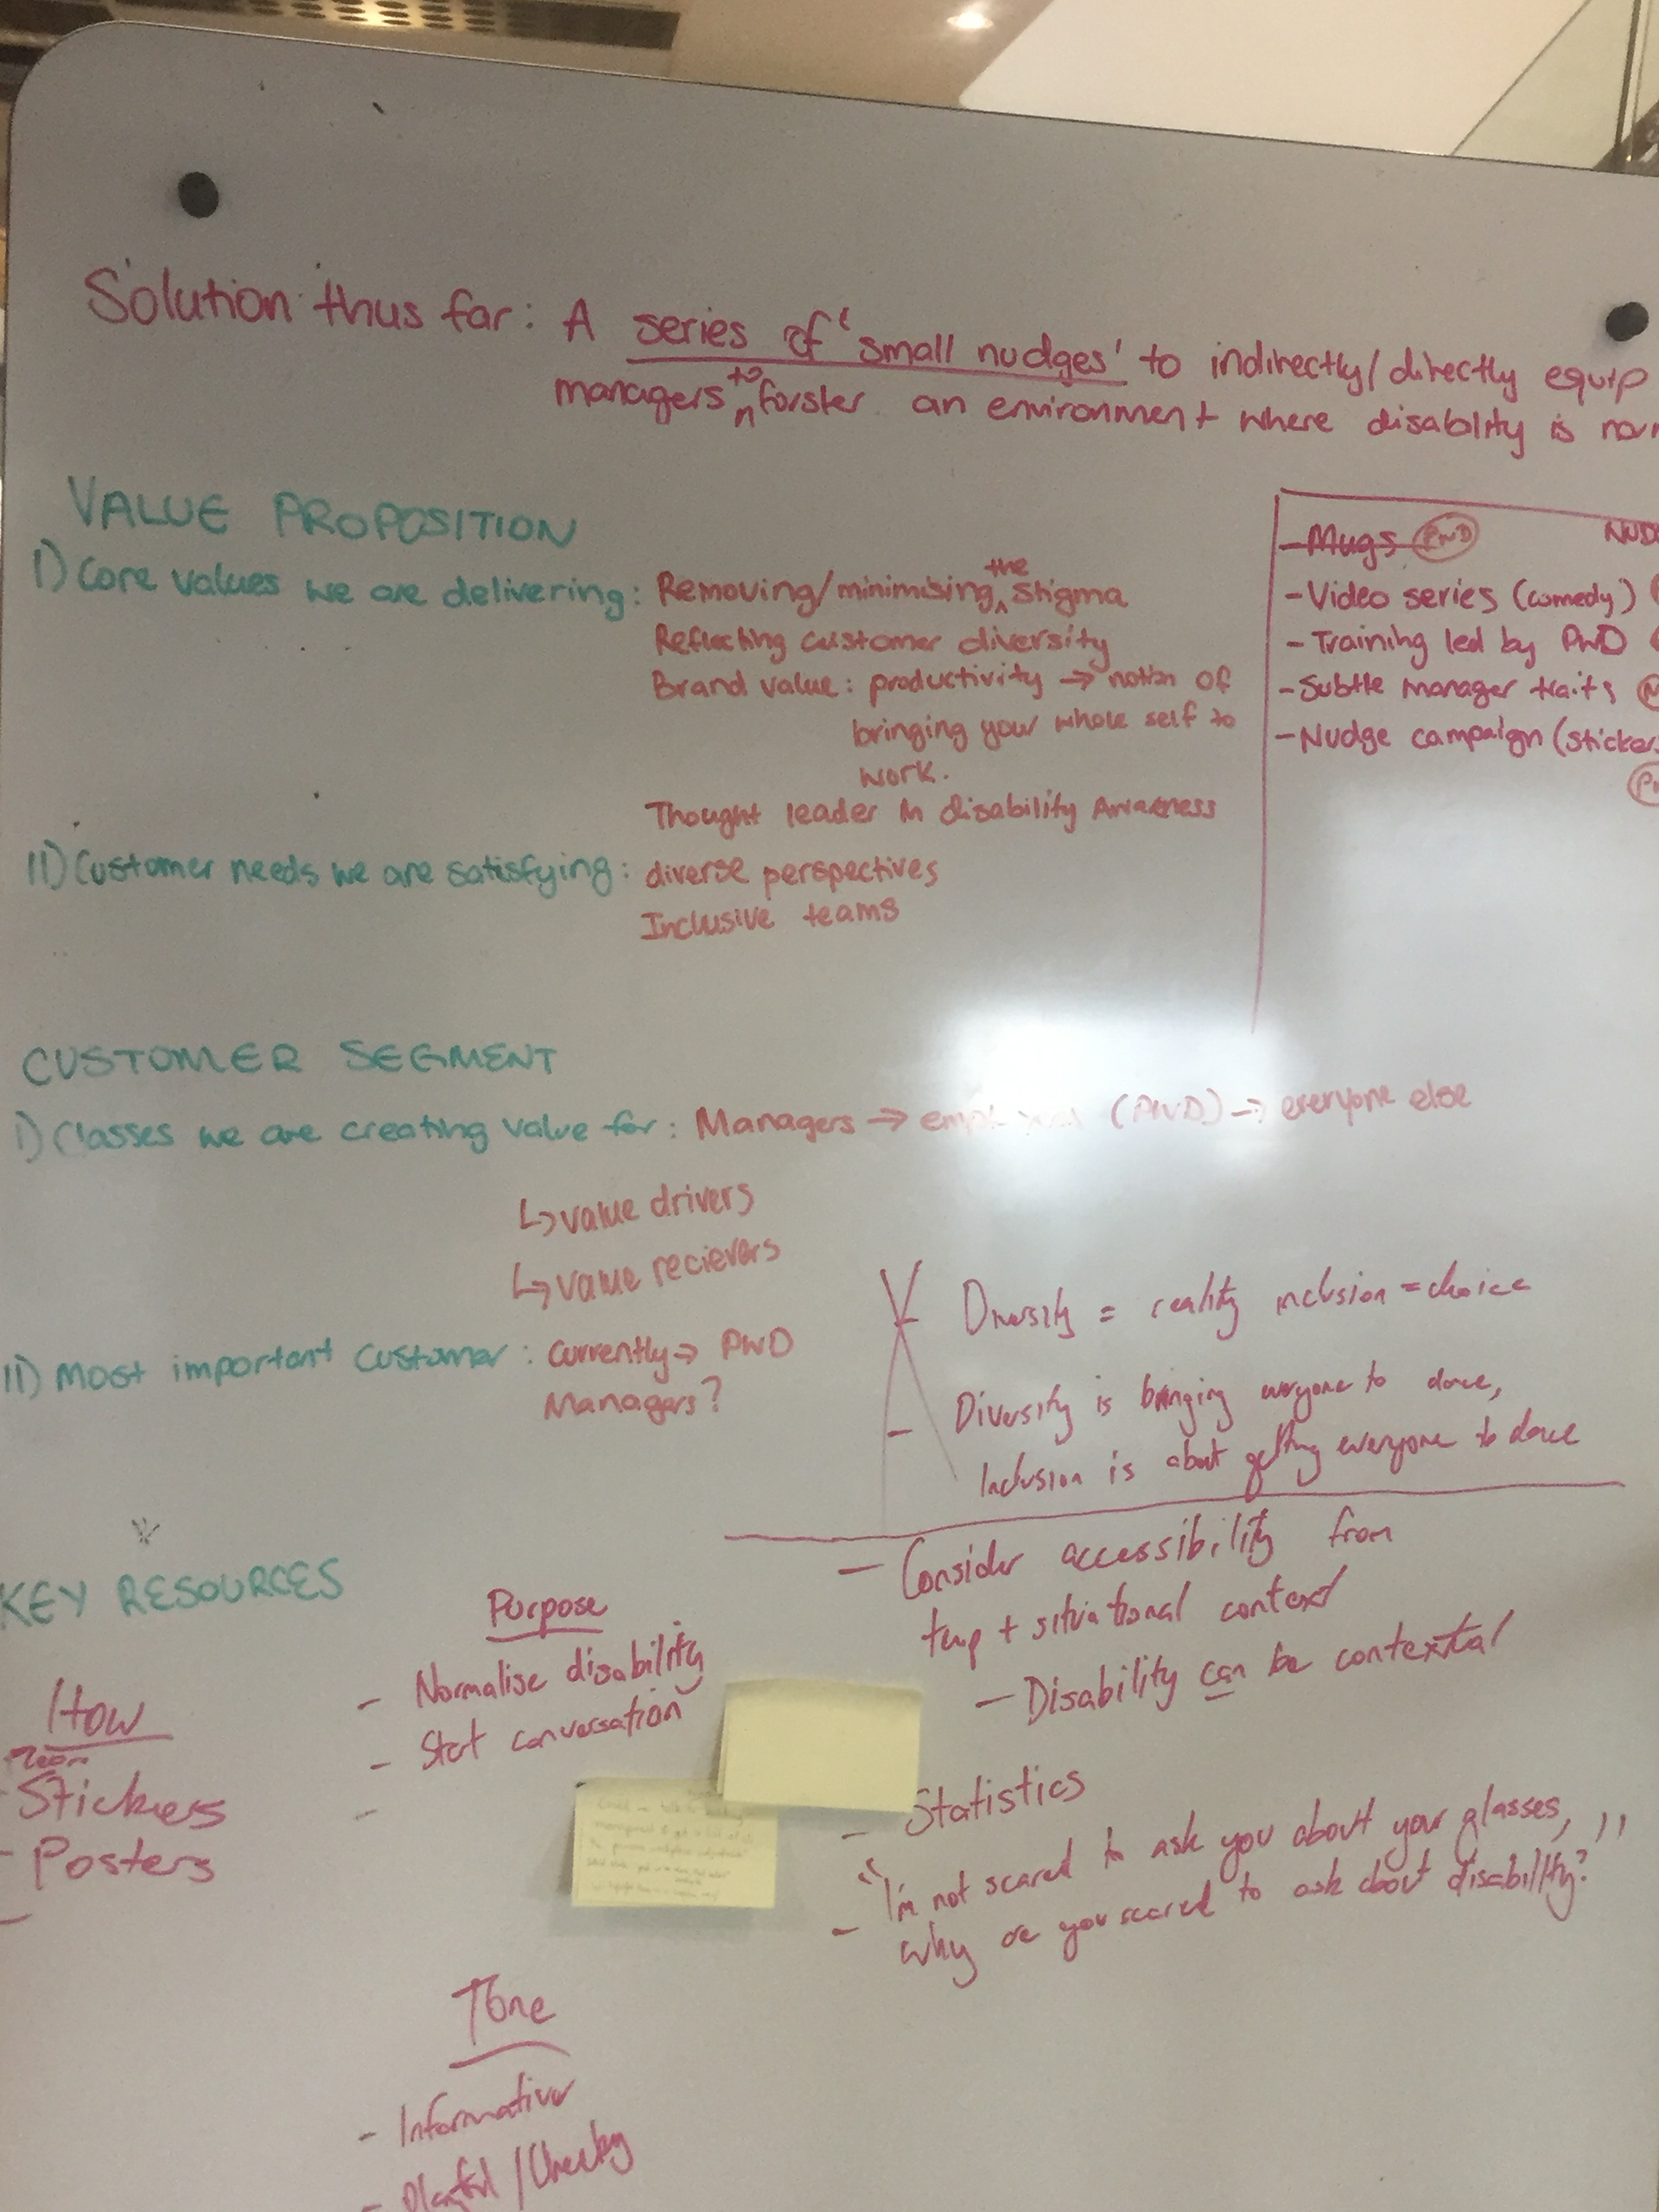 Solution thus far: A series of 'small nudges' to indirectly/directly equip
managers to forster an environment where disability is
VALUE PROPOSITION
I) Core values we are delivering: Removing/minimising the stigma
Reflecting customer diversity
Brand value: productivity → notion of
bringing your whole self to
work.
Thought leader in disability Awareness
II) Customer needs we are satisfying: diverse perspectives
Inclusive teams
- Mugs PWD
- Video series (comedy)
- Training led by PwD
- Subtle manager traits
- Nudge campaign (sticker
CUSTOMER SEGMENT
I) Classes we are creating value for: Managers → (PWD) → everyone else
↳ value drivers
↳ value recievers
II) Most important customer: Currently → PWD
Managers?
Diversity = reality inclusion = choice
- Diversity is bringing everyone to dance,
Inclusion is about getting everyone to dance
- Consider accessibility from
temp + situational context
- Disability can be contextual
- Statistics
- "I'm not scared to ask you about your glasses,
why are you scared to ask about disability?"
KEY RESOURCES
How
- Stickers
- Posters
-
Purpose
- Normalise disability
- Start conversation
-
Tone
- Informative
- Playful / Cheeky